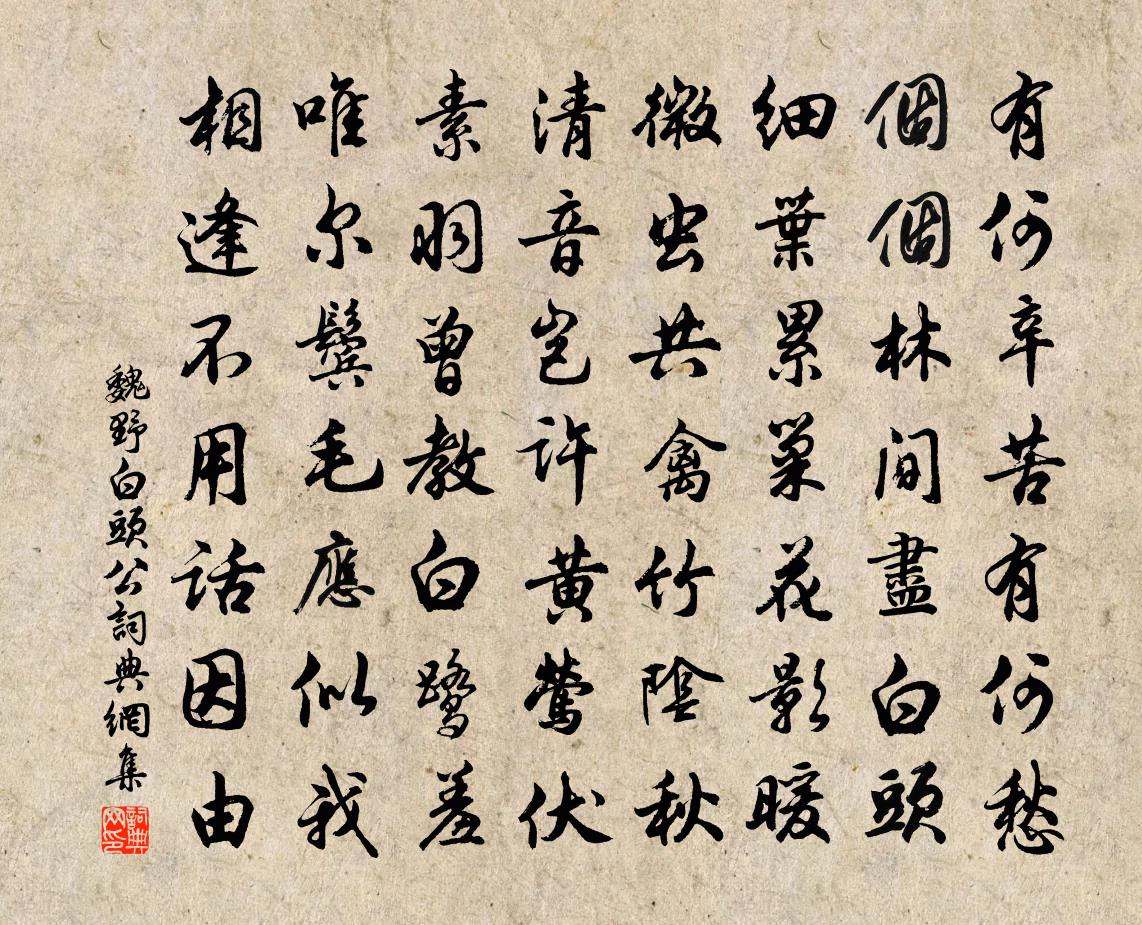 有何辛苦有何愁
個個林間盡白頭
細葉累巢花影暖
微虫共禽竹陰秋
清音豈許黄鶯伏
素羽曾教白鷺羞
唯尔鬓毛應似我
相逢不用話因由
魏野白頭公詞典網集
詞典网印